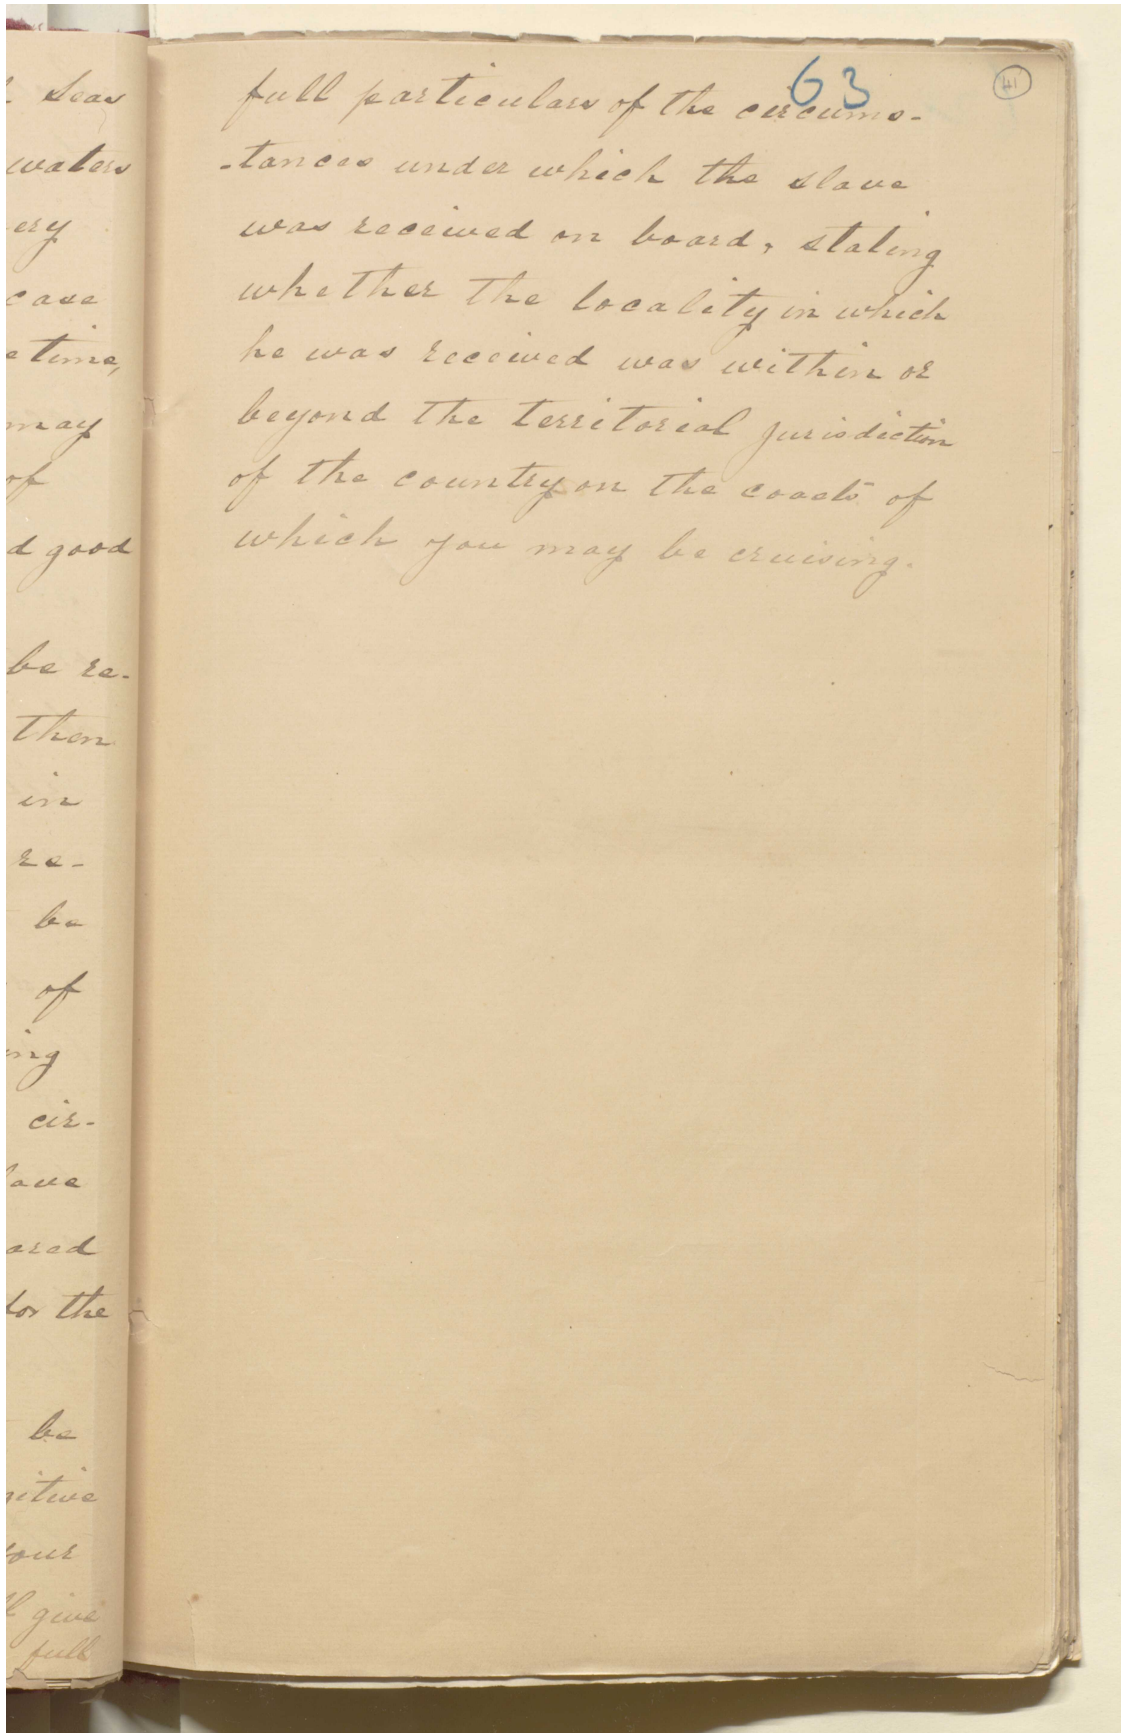 seas
waters
ery
case
e time,
may
of
d good
be re-
then
in
re-
be
of
ing
cir-
lave
ared
for the
be
gitive
your
ll give
full
63
41
full particulars of the circums-
-tances under which the slave
was received on board, stating
whether the locality in which
he was received was within or
beyond the territorial jurisdiction
of the country on the coasts of
which you may be cruising.